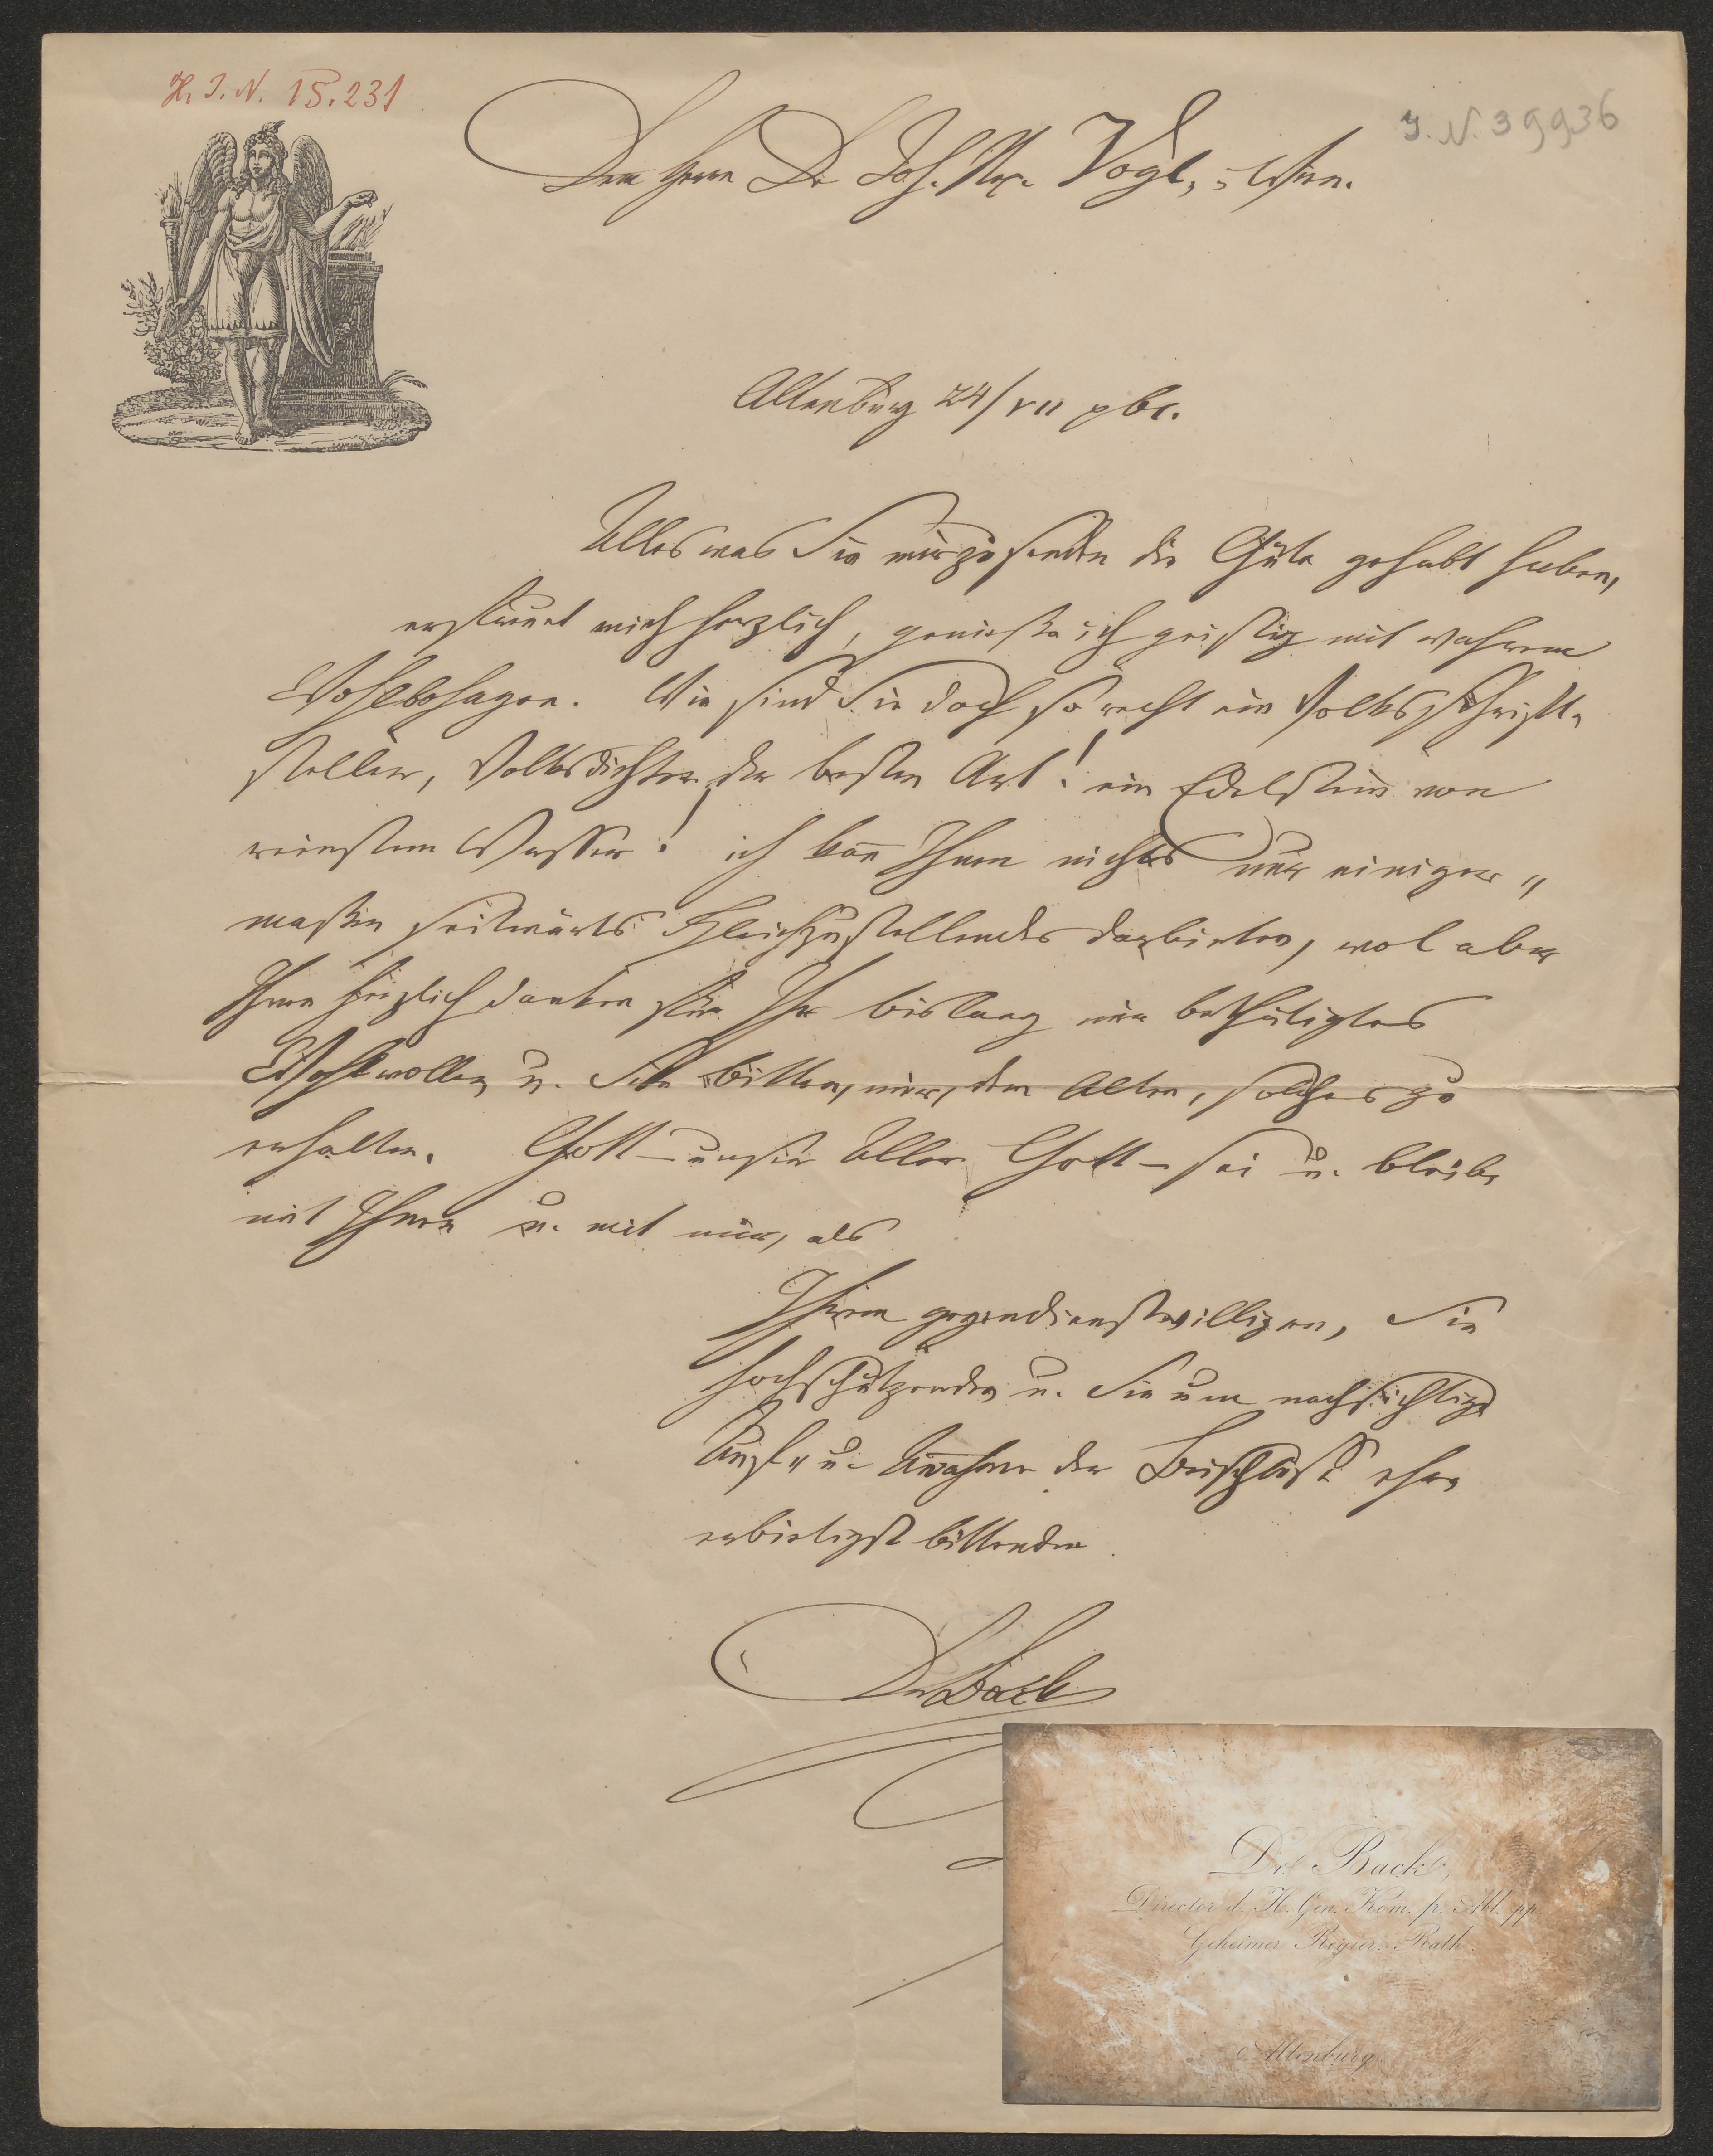 H. I. N. 15.231
I. N. 39936
Dem Herrn Dr Joh. Np. Vogl, Wien.
Altenburg 24/VII
Alles was Sie mir zu senden die Güte gehabt haben,
erfreuet mich herzlich, genieße ich geistig mit wahrem
Wohlbehagen. Wie sind Sie doch so recht ein Volksschrift-
steller, Volksdichter der besten Art! ein Edelstein von
reinstem Wasser! ich kañ Ihnen nichts nur einiger„
maßen seitwärts Gleichzustellendes darbieten, wol aber
Ihnen herzlich danken für Ihr bislang mir bethätigtes
Wohlwollen u. Sie bitten, mir, dem Alten, solches zu
erhalten. Gott – unser Aller Gott – sei u. bleibe
mit Ihnen u. mit mir, als
Ihrem gegendienstwilligen, Sie
hochschätzenden u. Sie um nachsichtige
Auf„ u. Añahme der Beischluß ehr
erbietigst bittenden
Dr Back
Dr. Back,
Director d. H. Gen. Kom̃. fr. Abl. pp.
Geheimer Regier. Rath.
Altenburg.